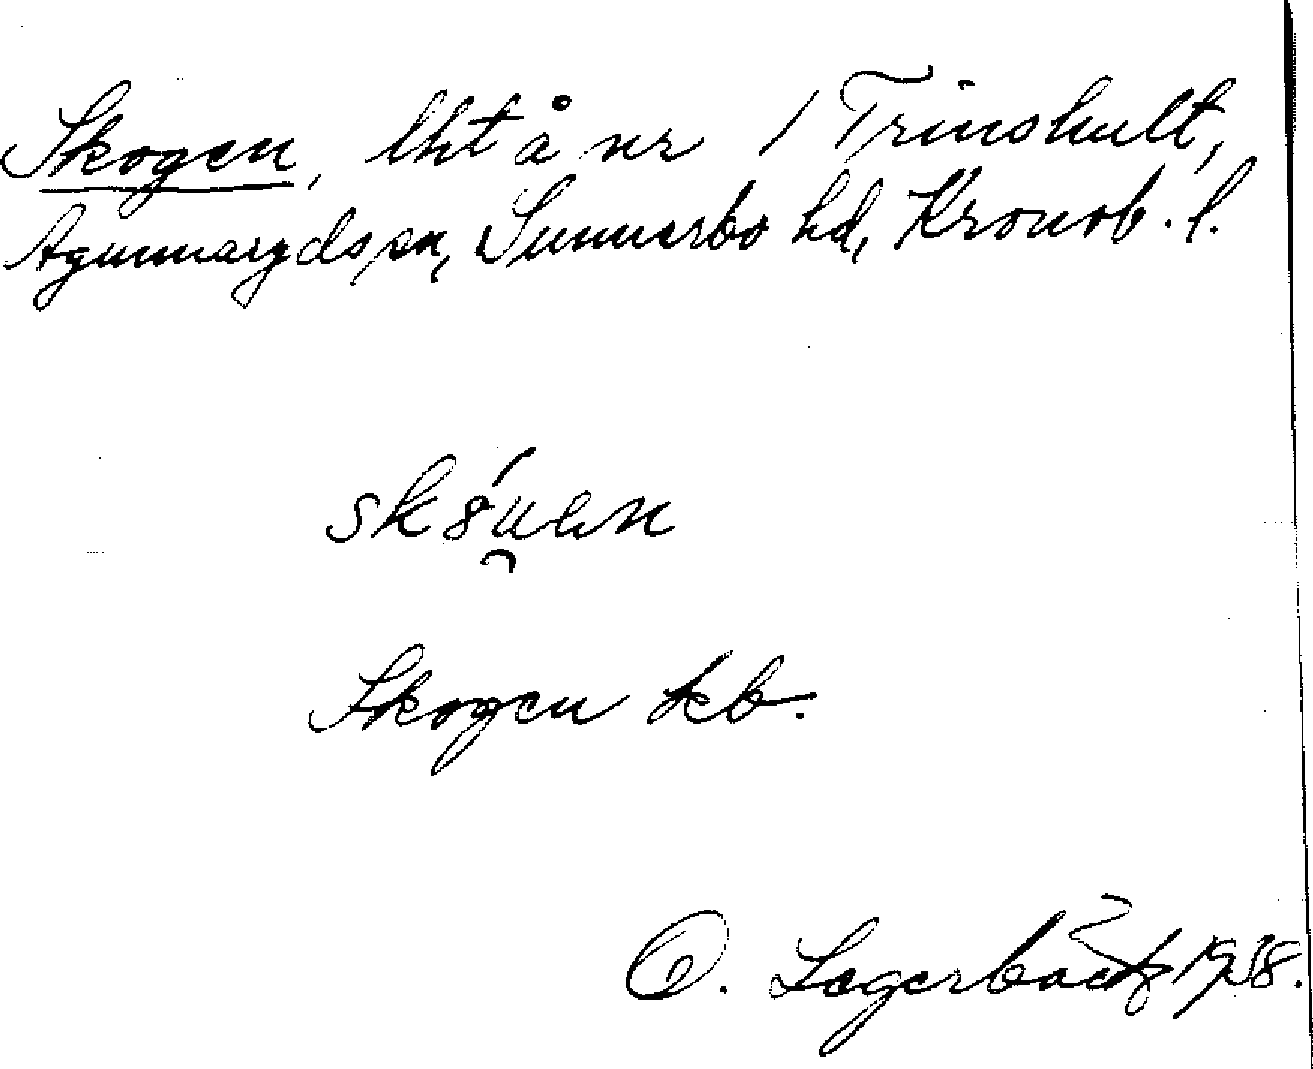 Skogen, lht å nr 1 Trinshult,
Agunnarydssn, Sunnerbo hd, Kronob. l.
Skogen kb.
O. Lagerbäck 1938.